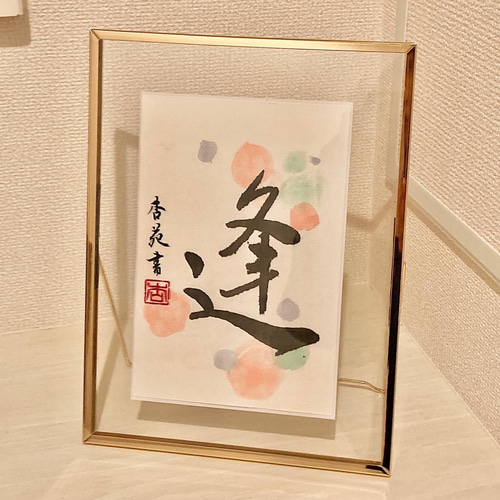 逢
杏苑書